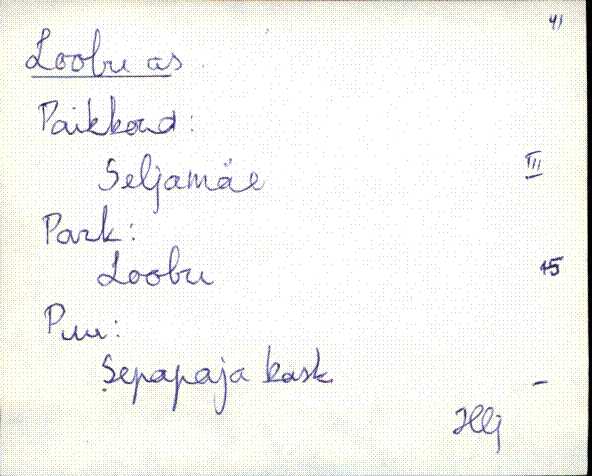 41
Loobu as
Paikkond:
Seljamäe III
Park:
Loobu 15
Puu:
Sepapaja kask –
Hlj